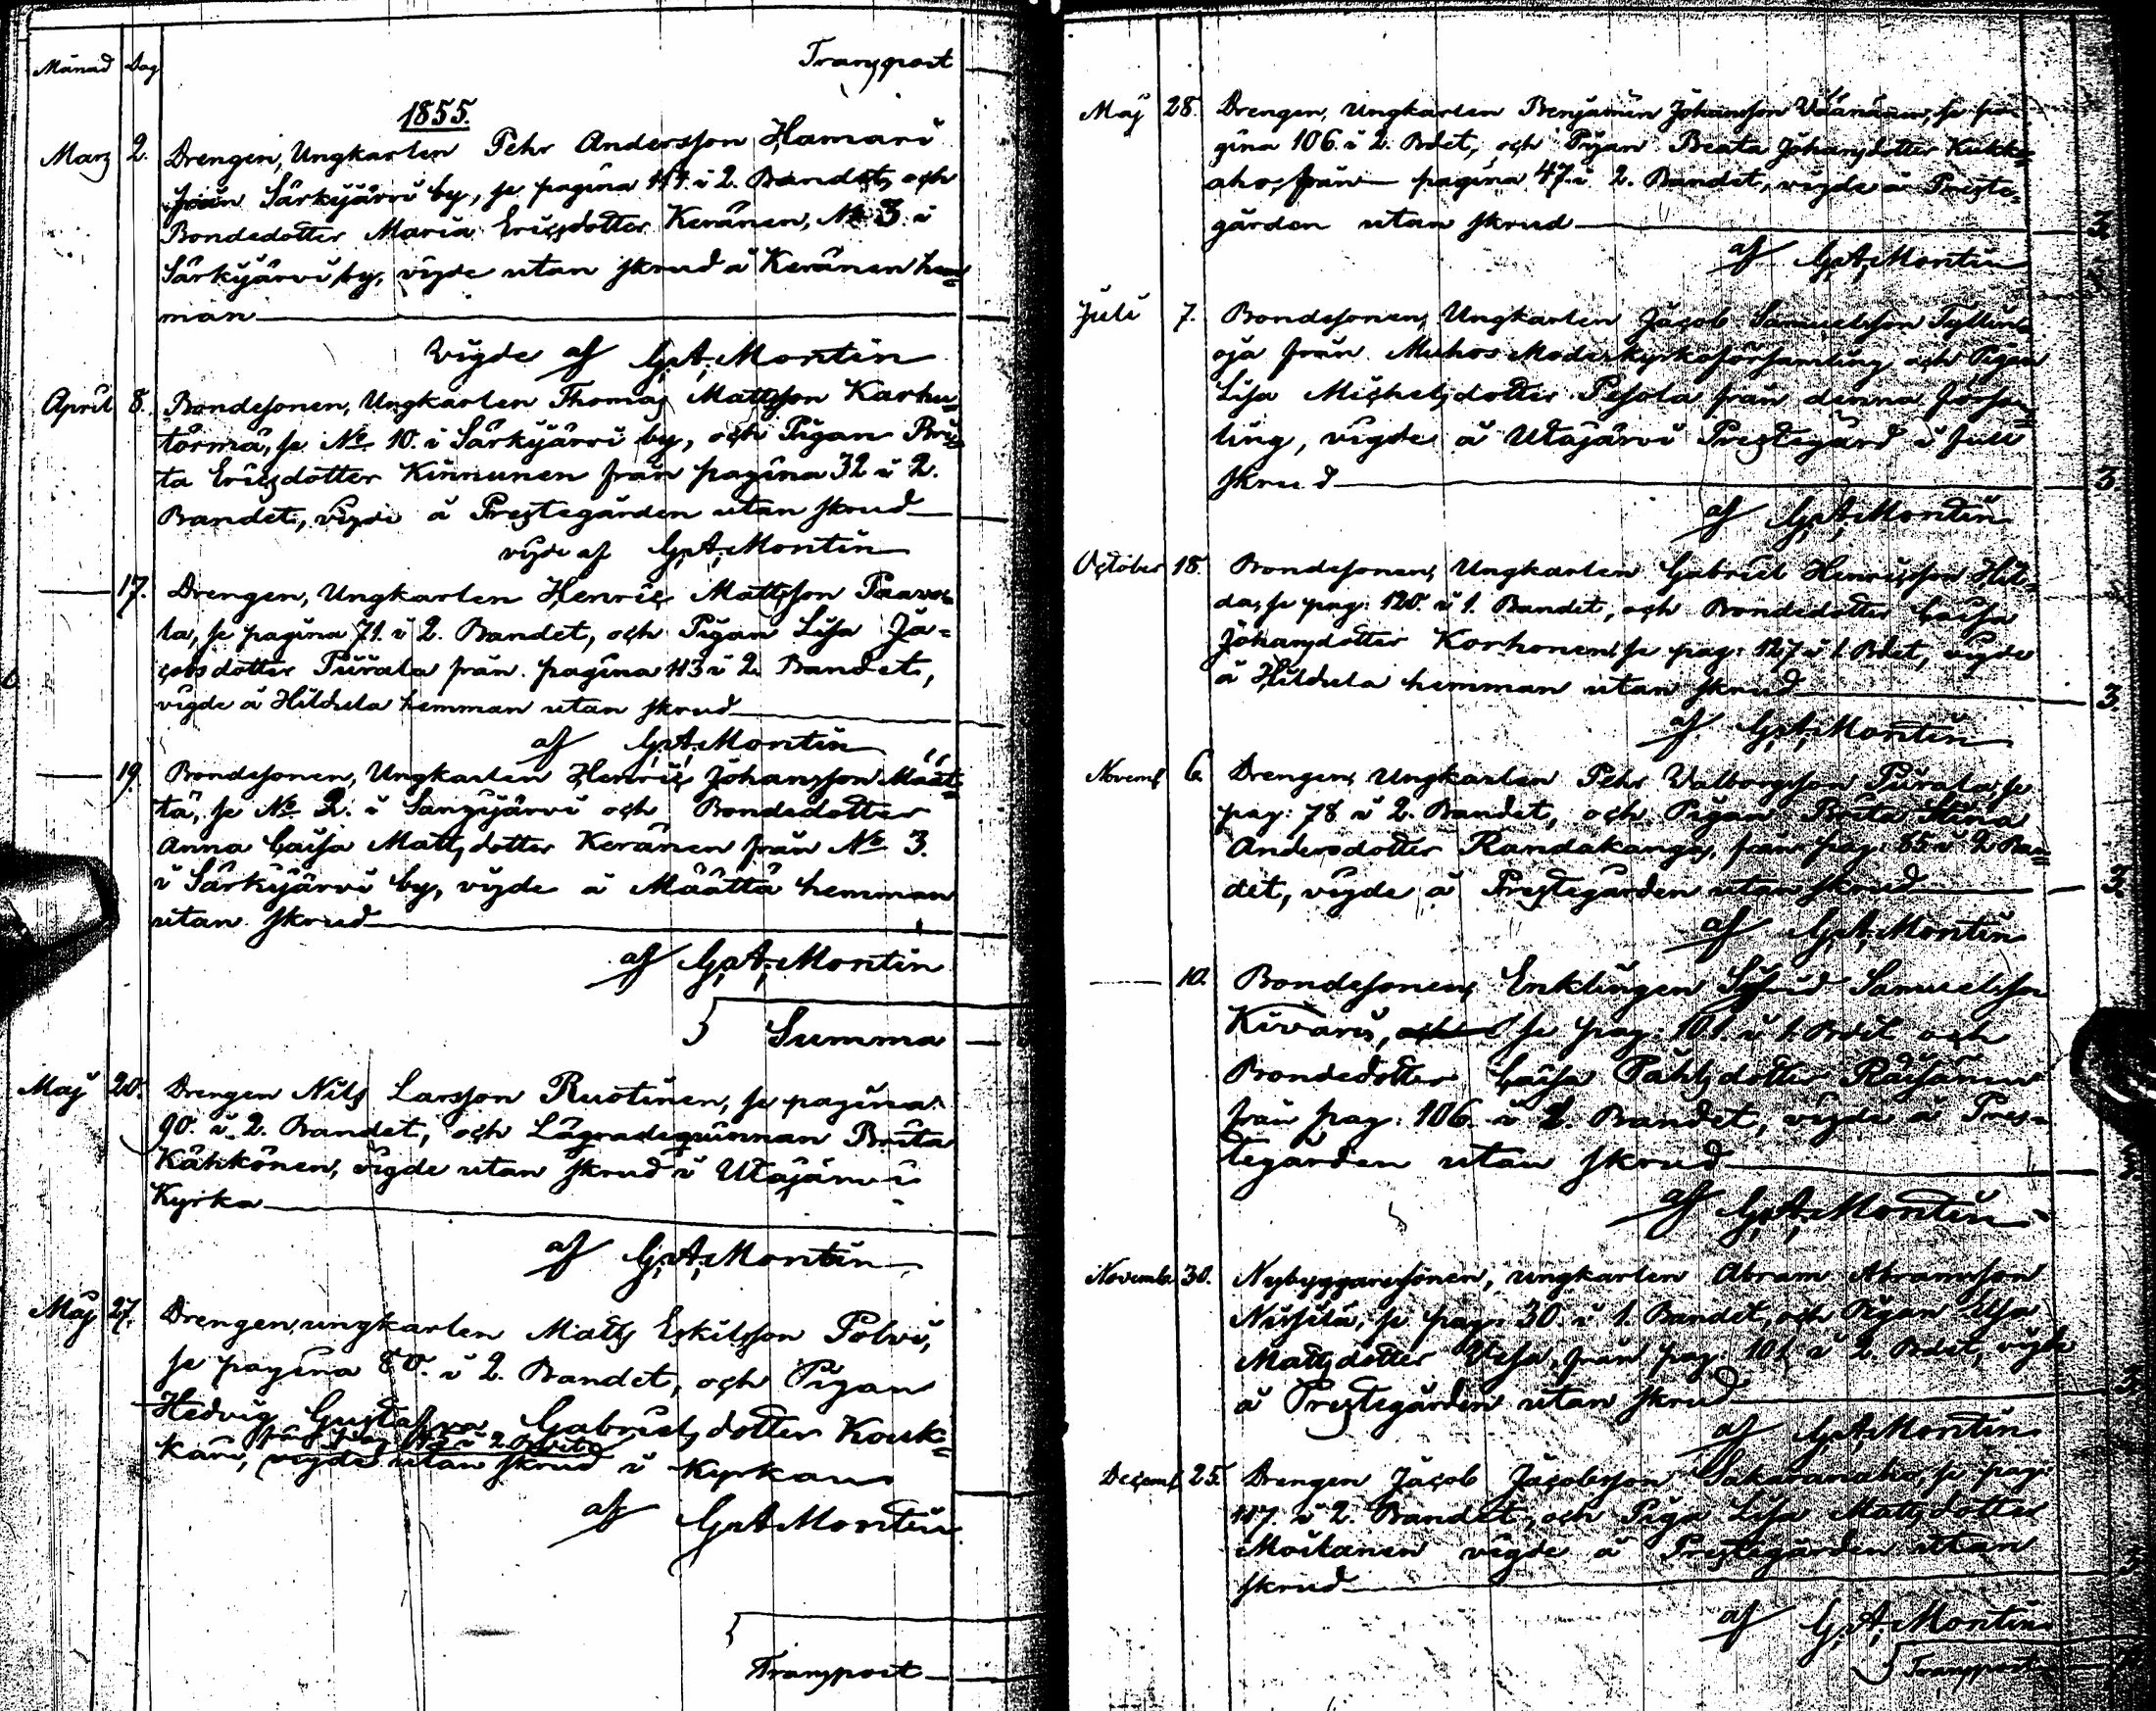 Månad Dag
Transport
1855.
Marz 2. Drengen, Ungkarlen Pehr Andersson Hamari
från Särkijärvi by, se pagina 114. i 2. Bandet, och
Bondedotter Maria Ericsdotter Keränen, No 3. i
Särkijärvi by, vigde utan skrud å Keränen hem=
man
Vigde af G. A. Montin
April 8. Bondesonen, Ungkarlen Thomas Mattsson Karhu=
törmä, se No 10. i Särkijärvi by, och Pigan Bri=
ta Ericsdotter Kinnunen från pagina 32 i 2.
Bandet, vigde å Prestegården utan skrud
vigde af G. A. Montin
17. Drengen, Ungkarlen Henric Mattsson Paavo=
la, se pagina 71. i 2. Bandet, och Pigan Lisa Ja=
cobsdotter Piirala från pagina 113 i 2 Bandet,
vigde å Hildula hemman utan skrud
af G. A. Montin
19. Bondesonen, Ungkarlen Henric Johansson Määt=
tä, se No 2. i Sangijärvi och Bondedotter
Anna Caisa Mattsdotter Keränen från No 3.
i Särkijärvi by, vigde å Määttä hemman
utan skrud
af G. A. Montin
Summa
Maj 20. Drengen Nils Larsson Ruotinen, se pagina
90. i 2. Bandet, och Lägradeqvinnan Brita
Kähkönen, vigde utan skrud i Utajärvi
Kyrka
af G. A. Montin
Maj 27. Drengen, ungkarlen Matts Eskilsson Polvi,
se pagina 80. i 2. Bandet, och Pigan
Hedvig Gustafva Gabrielsdotter Kouk=
från pag: i 2. Bdet
kari, vigde utan skrud i Kyrkan
af G. A. Montin
Transport
Maj 28. Drengen, Ungkarlen Benjamin Johansson Väänänen, se pa=
gina 106 i 2. Bdet, och Pigan Beata Johansdotter Kukko=
aho, från pagina 47. i 2. Bandet, vigde å Preste=
gården utan skrud 3.
af G. A. Montin
Juli 7. Bondesonen, Ungkarlen Jacob Samuelsson Tyllin=
oja från Muhos Moderkyrkoförsamling och Pigan
Lisa Michelsdotter Pesola från denna Försam=
ling, vigde å Utajärvi Prestegård i full
skrud 3
af G. A. Montin
October 18. Bondesonen, Ungkarlen Gabriel Henricsson Hil=
da, se pag: 120. i 1. Bandet, och Bondedotter Caisa
Johansdotter Korhonen, se pag: 127 i 1. Bdet, vigde
å Hildula hemman utan skrud 3.
af G. A. Montin
Novemb 6. Drengen, Ungkarlen Pehr Valborgsson Piirala, se
pag: 78 i 2. Bandet, och Pigan Brita Stina
Andersdotter Randakangas, från pag: 85 i 2 Ban=
det, vigde å Prestegården utan skrud 3.
af G. A. Montin
10. Bondesonen, Enklingen Sigfrid Samuelsson
Kivari, se pag: 101. i 1. Bdet och
Bondedotter Caisa Påhlsdotter Räisänen
från pag: 106. i 2. Bandet, vigde å Pres=
tegården utan skrud
af G. A. Montin
Novemb 30. Nybyggaresonen, ungkarlen Abram Abramsson
Nissilä, se pag: 30. i 1. Bandet, och Pigan Lisa
Mattsdotter Vesa, från pag: 101 i 2. Bdet, vigde
å Prestegården utan skrud 3.
af G. A. Montin
Decemb 25. Drengen Jacob Jacobsson Sakaranaho, se pag:
117. i 2. Bandet, och Piga Lisa Mattsdotter
Moilanen vigde å Prestegården utan
skrud
af G. A. Montin
Transport